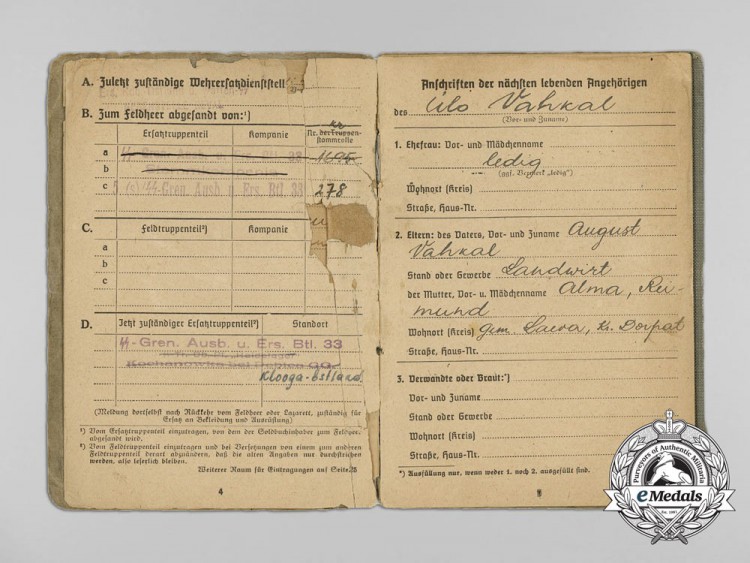 A. Zuletzt zuständige Wehrersatzdienststell
B. Zum Feldheer abgesandt von:¹)
Ersatztruppenteil Kompanie Nr. der Truppenstammrolle
a SS-Gren. Ausb. u. Ers. Btl. 33 1695
b
c 5 (s) SS-Gren. Ausb. u. Ers. Btl. 33 278
C. Feldtruppenteil²) Kompanie
a
b
c
D. Jetzt zuständiger Ersatztruppenteil²) Standort
SS-Gren. Ausb. u. Ers. Btl. 33
Kochanowka bei
Klooga-Estland.
(Meldung dortselbst nach Rückkehr vom Feldheer oder Lazarett, zuständig für
Ersatz an Bekleidung und Ausrüstung)
¹) Vom Ersatztruppenteil einzutragen, von dem der Soldbuchinhaber zum Feldheer
abgesandt wird.
²) Vom Feldtruppenteil einzutragen und bei Versetzungen von einem zum anderen
Feldtruppenteil derart abzuändern, daß die alten Angaben nur durchstrichen
werden, also leserlich bleiben.
Weiterer Raum für Eintragungen auf Seite
4
Anschriften der nächsten lebenden Angehörigen
des Ülo Vahkal
(Vor- und Zuname)
1. Ehefrau: Vor- und Mädchenname
ledig
(ggf. Vermerk „ledig")
Wohnort (Kreis)
Straße, Haus-Nr.
2. Eltern: des Vaters, Vor- und Zuname August
Vahkal
Stand oder Gewerbe Landwirt
der Mutter, Vor- u. Mädchenname Alma, Rei-
mund
Wohnort (Kreis) gem. Laeva, Kr. Dorpat
Straße, Haus-Nr.
3. Verwandte oder Braut:*)
Vor- und Zuname
Stand oder Gewerbe
Wohnort (Kreis)
Straße, Haus-Nr.
*) Ausfüllung nur, wenn weder 1. noch 2. ausgefüllt sind.
Purveyors of Authentic Militaria
eMedals